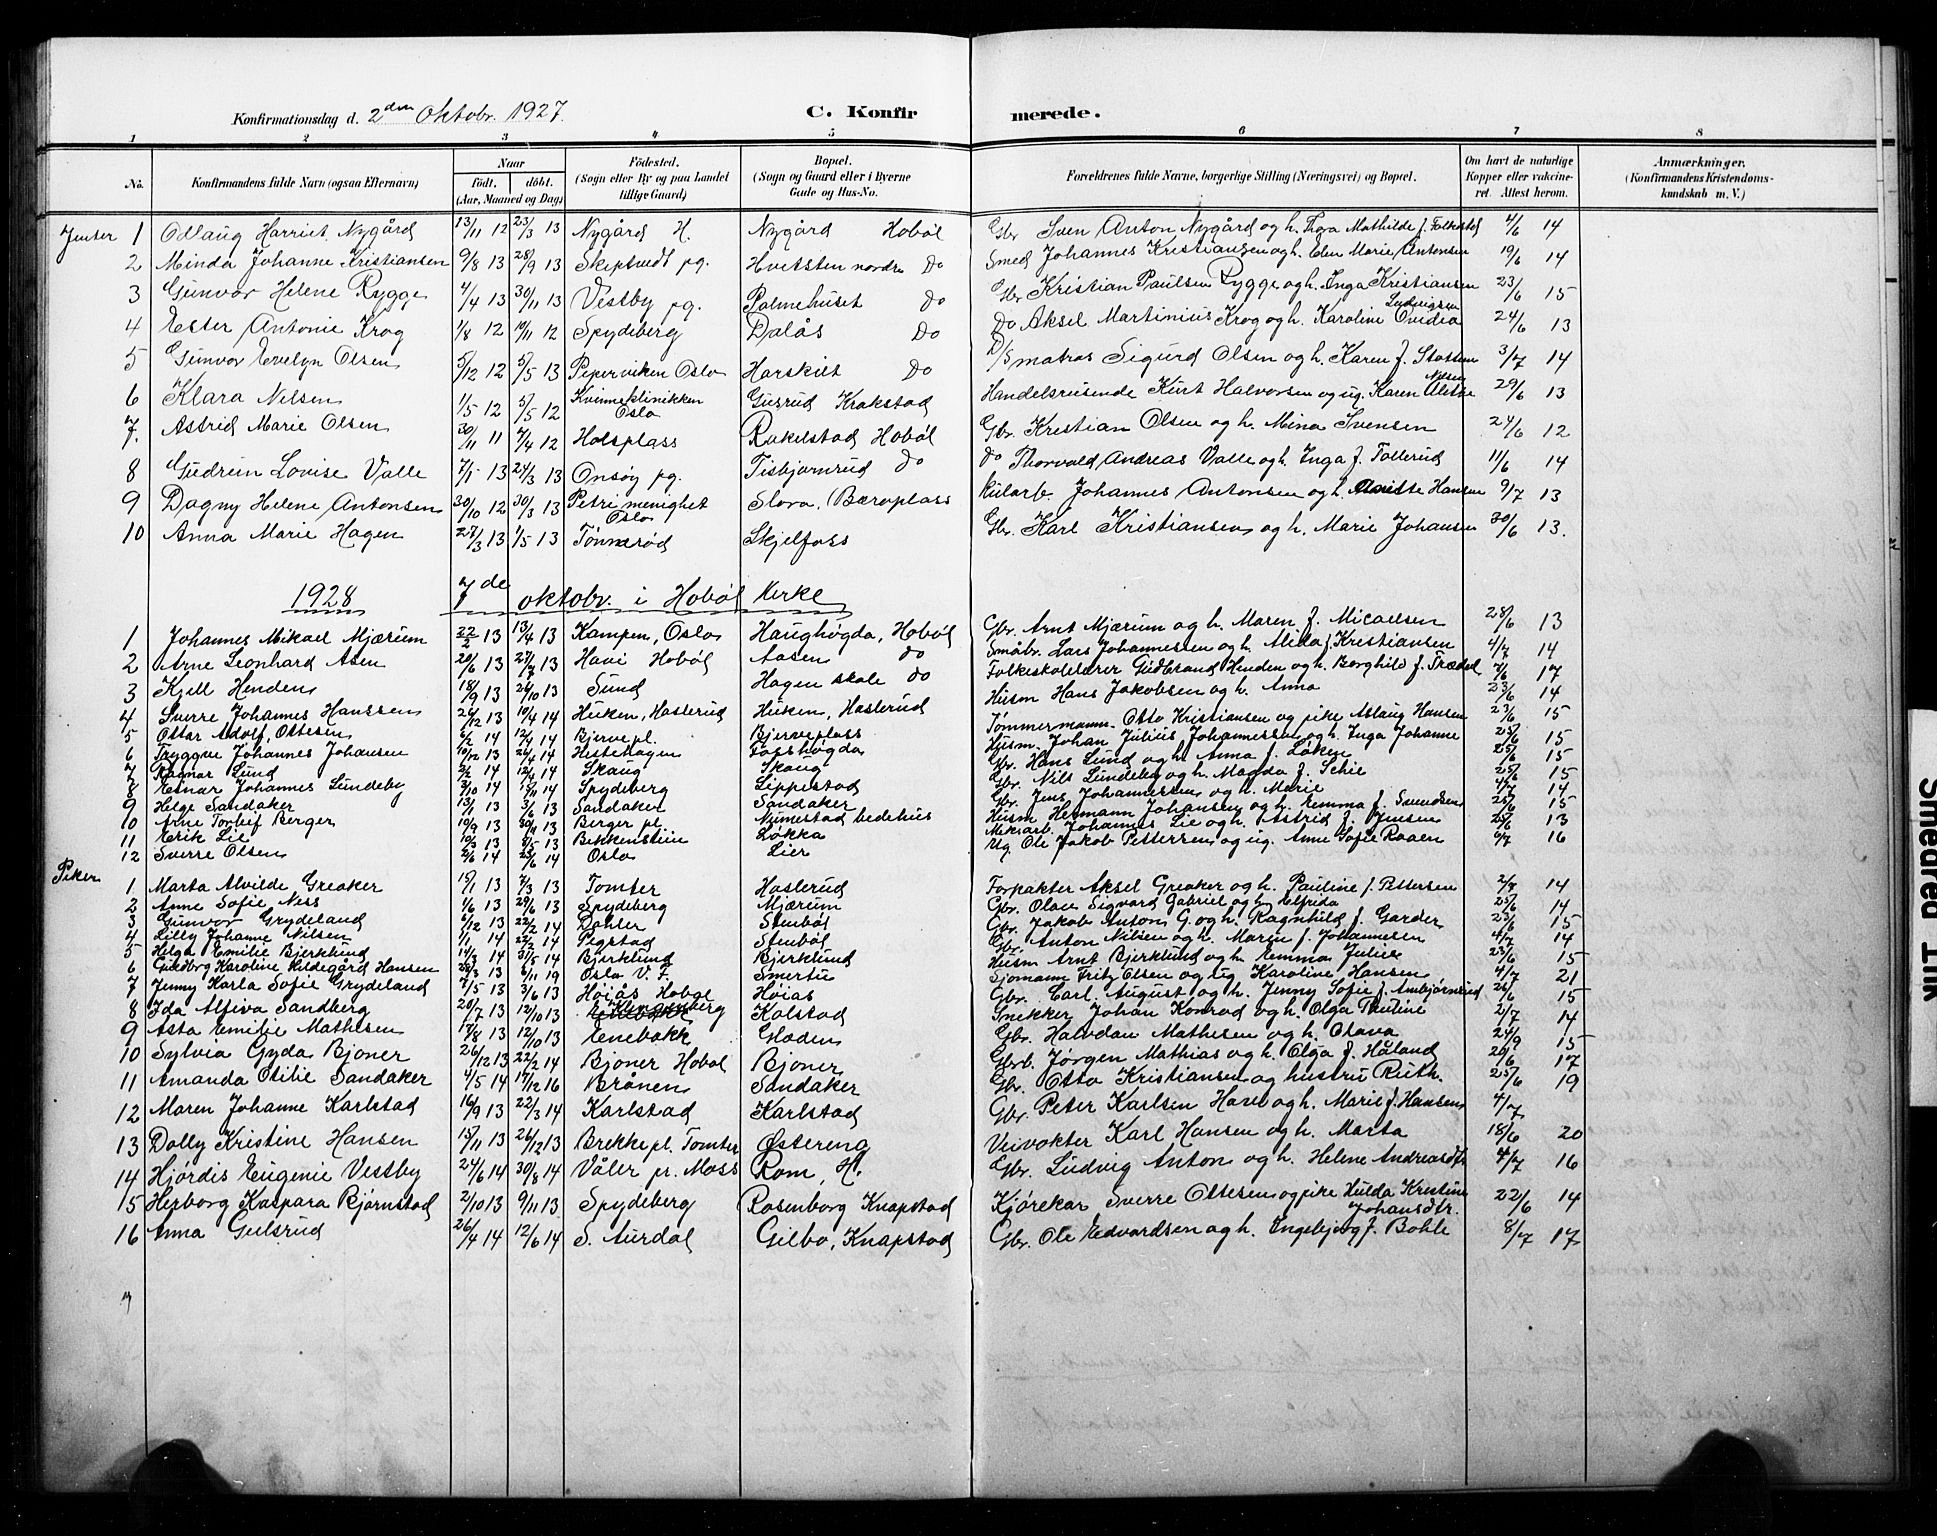 Konfirmationsdag d. 2den Oktobr. 1927. C. Konfirmerede.
1 2 3 4 5 6 7 8
No. Konfirmandens fulde Navn (ogsaa Efternavn) Naar født. døbt. (Aar, Maaned og Dag) Fødested. (Sogn eller By og paa Landet tillige Gaard) Bopæl. (Sogn og Gaard eller i Byerne Gade og Hus-No. Forældrenes fulde Navne, borgerlige Stilling (Næringsvei) og Bopæl. Om havt de naturlige Kopper eller vaccineret. Attest herom. Anmærkninger. (Konfirmandens Kristendomskundskab m. V.)
Jenter 1 Odlaug Harriet Nygård 13/11 12 23/3 13 Nygård H. Nygård Hobøl Gbr. Sven Anton Nygård og h. Thora Mathilde f. Folkestad 4/6 14
2 Minda Johanne Kristiansen 9/8 13 28/9 13 Skiptvedt pg. Hvitsten nordre Do Smed Johannes Kristiansen og h. Elen Marie Antonsen 19/6 14
3 Gunvor Helene Rygge 4/4 13 30/11 13 Vestby pg. Palmehuset Do Gbr Kristian Paulsen Rygge og h. Inga Kristiansen 23/6 15
4 Ester Antonie Krog 1/8 12 10/11 12 Spydeberg Dalås Do Do Aksel Martinius Krog og h. Karoline Ovidia Ludvigsen 24/6 13
5 Gunvor Evelyn Olsen 5/12 12 5/5 13 Piperviken Oslo Harskilt Do D/S matros Sigurd Olsen og h. Karen f. 3/7 14
6 Klara Nilsen 1/5 12 5/5 12 Kvinneklinikken Oslo Gusrud Krakstad Handelsreisende Kurt Halvorsen og ug. Karen Nilsen 29/6 13
7. Astrid Marie Olsen 30/11 11 7/4 12 Holsplass Rakelstad Hobøl Gbr. Kristian Olsen og h. Mina Svensen 24/6 12
8 Gudrun Lovise Valle 7/1 13 24/3 13 Onsøy pg. Tisbjørnrud Do Do Thorvald Andreas Valle og h. Inga f. Follerud 11/6 14
9 Dagny Helene Antonsen 30/10 12 30/3 13 Petri menighet Oslo Slora. (Bæroplass Johannes Antonsen og h. Hansen 9/7 13
10 Anna Marie Hagen 27/3 13 1/5 13 Tønnerød Skjelfoss Gbr. Karl Kristiansen og h. Marie Johansen 30/6 13.
1928 7de oktobr. i Hobøl Kirke
1 Johannes Mikael Mjærum 22/2 13 13/4 13 Kampen, Oslo Haughøgda, Hobøl Gbr. Arnt Mjærum og h. Maren f. Micaelsen 28/6 13
2 Arne Leonhard Asen 20/6 13 27/7 13 Havi Hobøl Aasen do Småbr. Lars Johannessen og h. Alida f. Kristiansen 4/7 14
3 Kjell Henden 18/9 13 26/10 13 Sund Hagen skole do Folkeskolelærer Gudbrand Henden og h. Borghild f. 7/6 17
4 Sverre Johannes Hanssen 24/12 13 10/4 14 Huken, Haslerud Huken, Haslerud Husm Hans Jakobsen og h. Anna 23/6 14
5 Ottar Adolf, Ottesen 6/2 14 12/4 14 Bjerve pl. Bjerveplass Tømmermann Otto Kristiansen og pike Aslaug Hansen 23/6 15
6 Tryggve Johannes Johansen 10/12 13 26/4 14 Hestehagen Fosshøgda Husm. Johan Julius Johannessen og h. Inga Johanne 23/6 15
7 Ragnar Lund 2/2 14 12/4 14 Skaug Skaug Gbr. Hans Lund og h. Anna f. Løken 25/6 15
8 Einar Johannes Lundeby 3/10 14 14 Spydeberg Lippestad Gbr. Nils Lundeby og h. Magda f. Schie 25/6 15
9 Helge Sandaker 13/1 13 3/6 13 Sandaker Sandaker Gbr. Jens Johannessen og h. Marie 4/7 14
10 Arne Torleif Berger 19/9 13 30/11 13 Berger pl. bedehus Husm Hermann Johansen og h. Emma f. Svendsen 25/6 15
11 Erik Lie 10/3 13 8/5 13 Løkka Johannes Lie og h. Astrid f. Jensen 25/6 13
12 Sverre Olsen 2/6 14 25/6 14 Oslo Lier Ug. Ole Jakob Pettersen og ug. Anne Sofie Raaen 6/7 16
Piker 1 Marta Alvilde Greaker 15/1 13 7/3 13 Tomter Haslerud Forpakter Aksel Greaker og h. Pauline f. Pettersen 2/8 14
2 Anne Sofie Ness 1/6 13 29/6 13 Spydeberg Mjærum Gbr. Olav Sigvard Gabriel og h. Alfrida 25/6 14
3 Gunvor Grydeland 6/12 13 22/2 14 Dahler Stenbøl Gbr. Jakob Anton G. og h. Ragnhild f. Garder 23/6 15
4 Lilly Johanne Nilsen 1/1 14 22/2 14 Pigstad Stenbøl Gbr. Anton Nilsen og h. Maren f. Johannesen 4/7 14
5 Helga Emilie Bjerklund 14/3 14 31/5 14 Bjerklund Bjerklund Husm Arnt Bjerklund og h. Emma Julie 23/6 15
6 Gudborg Karoline Hildegård Hansen 28/3 13 6/11 19 Oslo V. F. Smertu Sjømann Fritz Olsen og ug Karoline Hansen 4/7 21
7 Jenny Karla Sofie Grydeland 7/5 13 3/6 13 Høiås Hobøl Høiås Gbr. Carl August og h. Jenny Sofie f. Ambjørnrud 26/6 15
8 Ida Alfiva Sandberg 20/7 13 12/10 13 Kolstad Snekker Johan Konrad og h. Olga Thuline 2/7 14
9 Asta Emilie Mathisen 17/8 13 12/10 13 Enebakk Gladen Gbr. Halvdan Mathisen og h. Olava 24/9 15
10 Sylvia Gyda Bjoner 26/12 13 22/2 14 Bjoner Hobøl Bjoner Gbrb. Jørgen Mathias og h. Olga f. Håland 20/6 17
11 Amanda Otilie Sandaker 4/5 14 17/12 16 Brånen Sandaker Gbr. Otto Kristiansen og hustru Ruth. 25/6 19
12 Maren Johanne Karlstad 16/9 13 22/3 14 Karlstad Karlstad Gbr. Peter Karlsen Have og h. Marie f. Hansen 4/7
13 Dolly Kristine Hansen 15/11 13 26/12 13 Brekke pl. Tomter Østereng Veivokter Karl Hansen og h. Marta 18/6 20
14 Hjørdis Eugenie Vestby 24/6 14 30/8 14 Våler pr. Moss Rom, H. Gbr. Ludvig Anton og h. Helene Andreasdtr 4/7 16
15 Herborg Kaspara Bjørnstad 2/10 13 9/11 13 Spydeberg Rosenborg Knapstad Kjørekar Sverre Ottesen og pike Hulda Kristine Johansdtr. 22/6 14
16 Anna Gulsrud 26/4 14 12/6 14 S. Aurdal Gilbo, Knapstad Gbr. Ole Edvardsen og h. Engebjørg f. Bohle 8/7 17
Smedred Tilk